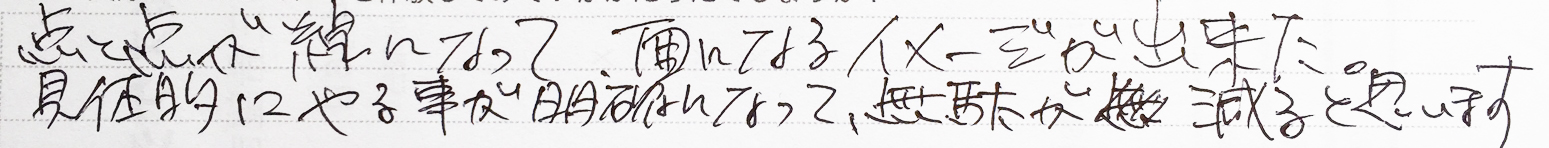 点と点が線になって、面になるイメージが出来た。
具体的にやる事が明確になって、無駄が減ると思います